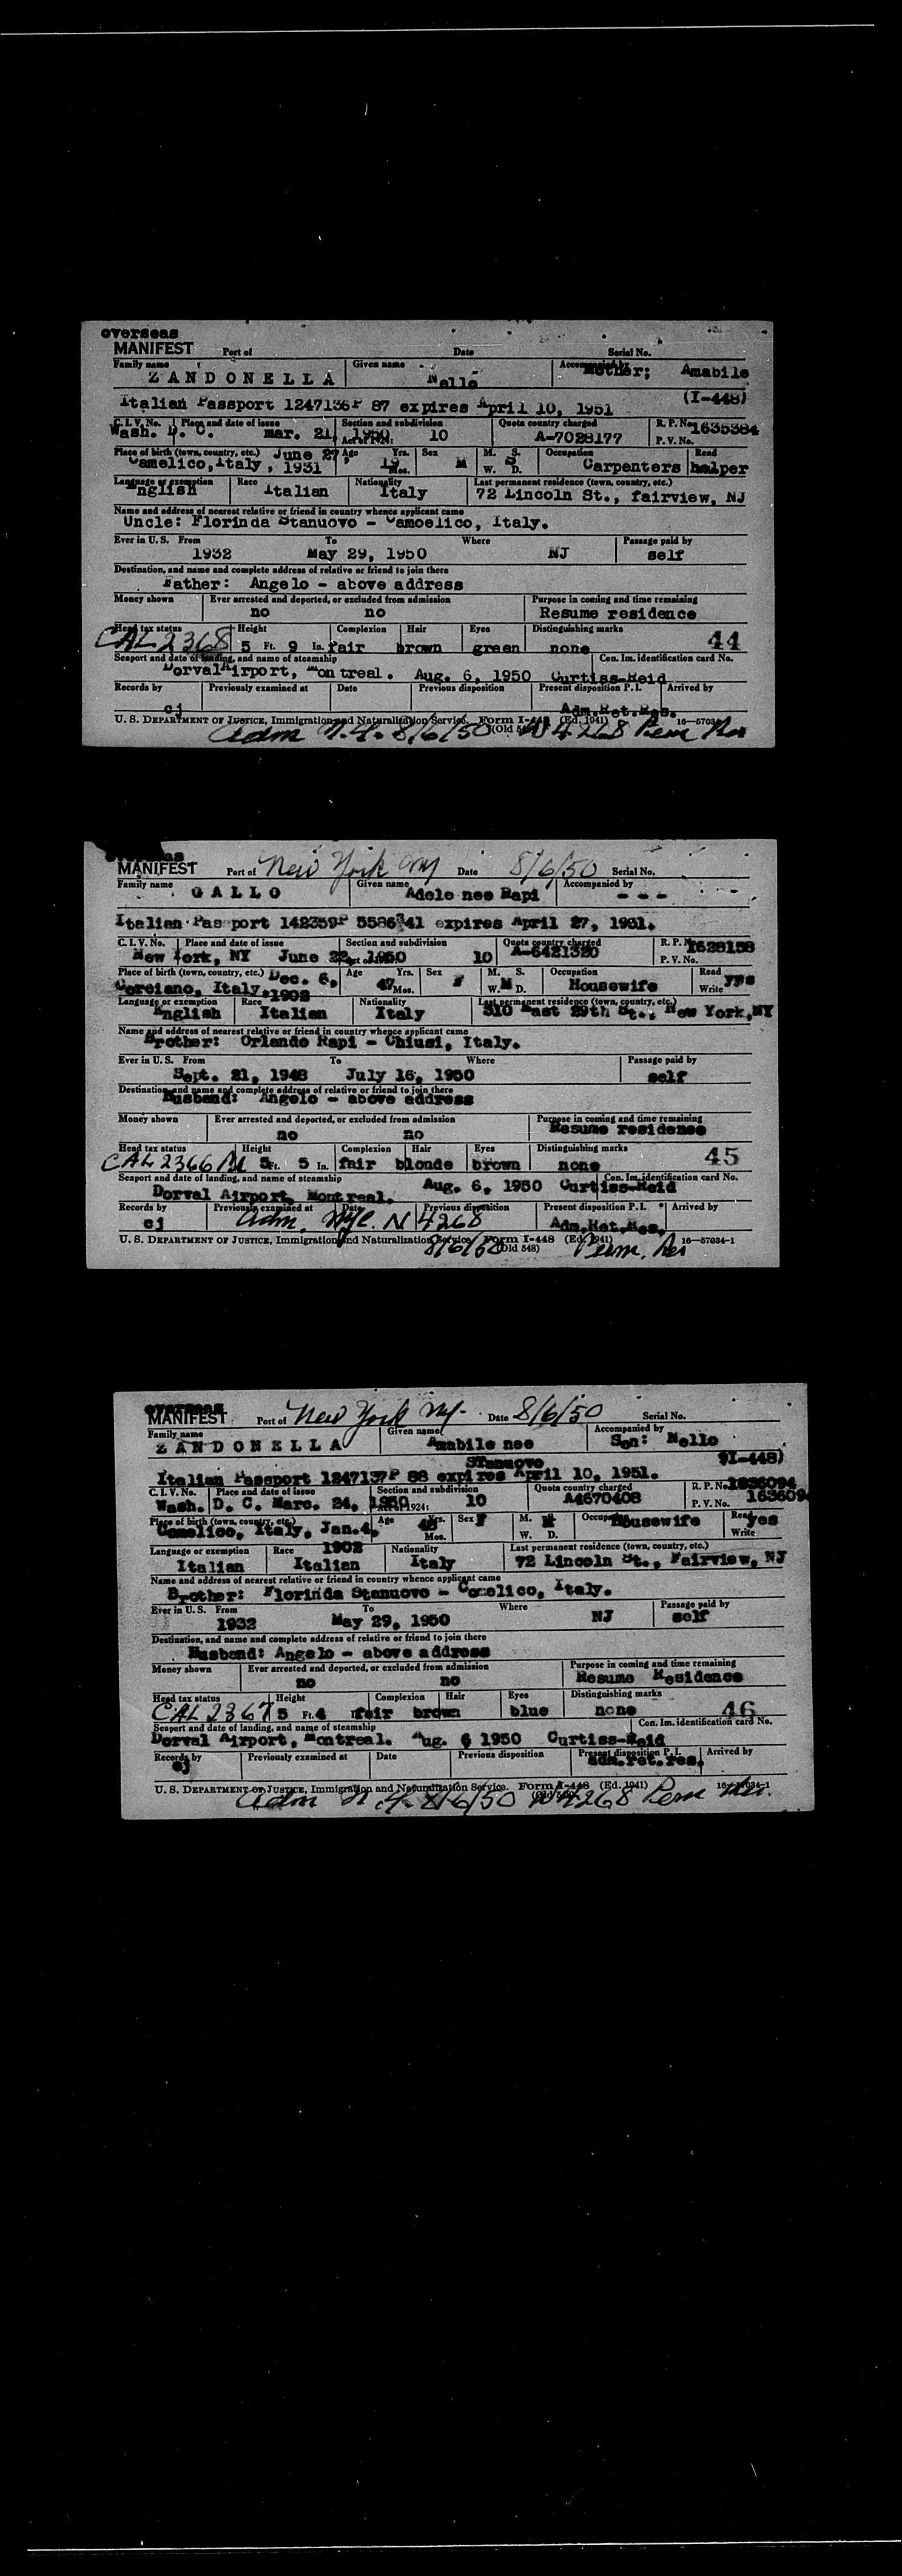 overseas
MANIFEST Port of Date Serial No.
Family name Given name Accompanied by Mother; Amabile
ZANDONELLA Nello
Italian Passport 1247136P 87 expires April 10, 1951 (I-448)
C. I. V. No. Place and date of issue Section and subdivision Quota country charged R. P. No. 1635384
Wash. D. C. mar. 21, 1950 Act of 1924: 10 A-7028177 P. V. No.
Place of birth (town, country, etc.) June 27, Age Yrs. Sex M. S. Occupation Read
Camelico, Italy, 1931 19 Mos. M W. D. Carpenters helper
Language or exemption Race Nationality Last permanent residence (town, country, etc.)
English Italian Italy 72 Lincoln St., fairview, NJ
Name and address of nearest relative or friend in country whence applicant came
Uncle: Florinda Stanuovo - Camoelico, Italy.
Ever in U. S. From To Where Passage paid by
1932 May 29, 1950 NJ self
Destination, and name and complete address of relative or friend to join there
Father: Angelo - above address
Money shown Ever arrested and deported, or excluded from admission Purpose in coming and time remaining
no no Resume residence
Head tax status Height Complexion Hair Eyes Distinguishing marks
CAL 2368 5 Ft. 9 In. fair brown green none 44
Seaport and date of landing, and name of steamship Con. Im. identification card No.
Dorval Airport, Montreal. Aug. 6, 1950 Curtiss-Reid
Records by Previously examined at Date Previous disposition Present disposition P. I. Arrived by
cj Adm.Ret.Res.
U. S. DEPARTMENT OF JUSTICE, Immigration and Naturalization Service. Form I-448 (Ed. 1941) 16—57034
(Old 548)
Adm N.Y. 8/6/50 N 4268 Perm Res
overseas
MANIFEST Port of New York NY Date 8/6/50 Serial No.
Family name Given name Accompanied by
GALLO Adele nee Rapi - - -
Italian Passport 142359P 5586341 expires April 27, 1951.
C. I. V. No. Place and date of issue Section and subdivision Quota country charged R. P. No. 1628158
New York, NY June 22, 1950 10 A-6421320 P. V. No.
Place of birth (town, country, etc.) Dec. 6, Age Yrs. Sex M. S. Occupation Read yes
Corciano, Italy. 1902 47 Mos. F W. M D. Housewife Write
Language or exemption Race Nationality Last permanent residence (town, country, etc.)
English Italian Italy 310 East 29th St., New York,NY
Name and address of nearest relative or friend in country whence applicant came
Brother: Orlando Rapi - Chiusi, Italy.
Ever in U. S. From To Where Passage paid by
Sept. 21, 1948 July 16, 1950 self
Destination, and name and complete address of relative or friend to join there
Husband: Angelo - above address
Money shown Ever arrested and deported, or excluded from admission Purpose in coming and time remaining
no no Resume residence
Head tax status Height Complexion Hair Eyes Distinguishing marks
CAL 2366 5 Ft. 5 In. fair blonde brown none 45
Seaport and date of landing, and name of steamship Con. Im. identification card No.
Dorval Airport, Montreal. Aug. 6, 1950 Curtiss-Reid
Records by Previously examined at Date Previous disposition Present disposition P. I. Arrived by
cj Adm. NYC. N 4268 Adm.Ret.Res.
U. S. DEPARTMENT OF JUSTICE, Immigration and Naturalization Service. Form I-448 (Ed. 1941) 16—57034-1
8/6/50 (Old 548) Perm. Res
overseas
MANIFEST Port of New York NY. Date 8/6/50 Serial No.
Family name Given name Accompanied by
ZANDONELLA Amabile nee Son: Nello
Stanuovo (I-448)
Italian Passport 1247137P 88 expires April 10, 1951.
C. I. V. No. Place and date of issue Section and subdivision Quota country charged R. P. No. 1636094
Wash. D. C. Marc. 24, 1950 Act of 1924: 10 A4670408 P. V. No. 163609
Place of birth (town, country, etc.) Age Yrs. Sex F M. Occupation Housewife Read yes
Comelico, Italy, Jan.4, W. D. Write
Language or exemption Race 1902 Nationality Last permanent residence (town, country, etc.)
Italian Italian Italy 72 Lincoln St., Fairview, NJ
Name and address of nearest relative or friend in country whence applicant came
Brother: Florinda Stanuovo - Comelico, Italy.
Ever in U. S. From To Where Passage paid by
1932 May 29, 1950 NJ self
Destination, and name and complete address of relative or friend to join there
Husband: Angelo - above address
Money shown Ever arrested and deported, or excluded from admission Purpose in coming and time remaining
no no Resume Residence
Head tax status Height Complexion Hair Eyes Distinguishing marks
CAL 2367 5 Ft. 4 fair brown blue none 46
Seaport and date of landing, and name of steamship Con. Im. identification card No.
Dorval Airport, Montreal. Aug. 6 1950 Curtiss-Reid
Records by Previously examined at Date Previous disposition Present disposition P. I. Arrived by
cj adm.ret.res.
U. S. DEPARTMENT OF JUSTICE, Immigration and Naturalization Service. Form I-448 (Ed. 1941) 16—57034-1
(Old 548)
Adm N.Y. 8/6/50 N 4268 Perm Res.